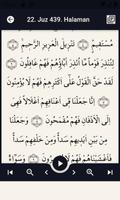 22. Juz 439. Halaman
مُسْتَقِيمٍ تَنْزِيلَ الْعَزِيزِ الرَّحِيمِ
لِتُنْذِرَ قَوْمًا مَا أُنْذِرَ آبَاؤُهُمْ فَهُمْ غَافِلُونَ
لَقَدْ حَقَّ الْقَوْلُ عَلَى أَكْثَرِهِمْ فَهُمْ لَا
يُؤْمِنُونَ إِنَّا جَعَلْنَا فِي أَعْنَاقِهِمْ أَغْلَالًا
فَهِيَ إِلَى الْأَذْقَانِ فَهُمْ مُقْمَحُونَ وَجَعَلْنَا
مِنْ بَيْنِ أَيْدِيهِمْ سَدًّا وَمِنْ خَلْفِهِمْ سَدًّا
فَأَغْشَيْنَاهُمْ